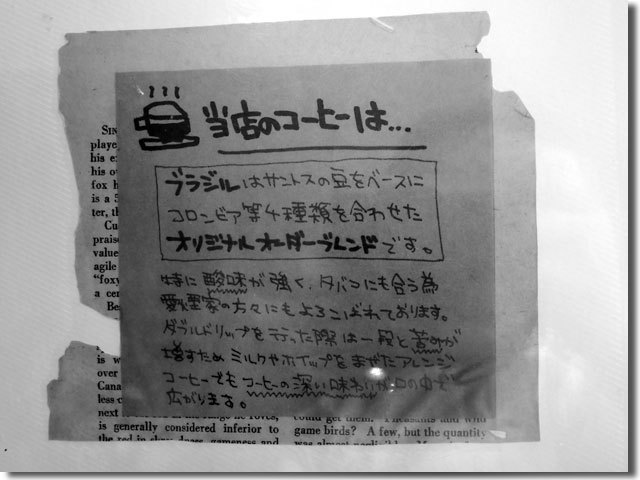 当店のコーヒーは...
ブラジルはサントスの豆をベースに
コロンビア等4種類を合わせた
オリジナルオーダーブレンドです。
特に酸味が強く、タバコにも合う為
愛煙家の方々にもよろこばれております。
ダブルドリップを行った際は一段と苦みが
増すためミルクやホイップをまぜたアレンジ
コーヒーでもコーヒーの深い味わいが口の中で
広がります。
SIN
playe
his ex
his ow
fox h
is a 5
ter, th
Cu
praise
value
agile
"foxy
a cer
Be
is w
over
Cana
less c
next
is generally considered inferior to
the red in
gameness and
could get them. Pheasants and wild
game birds? A few, but the quantity
was almost